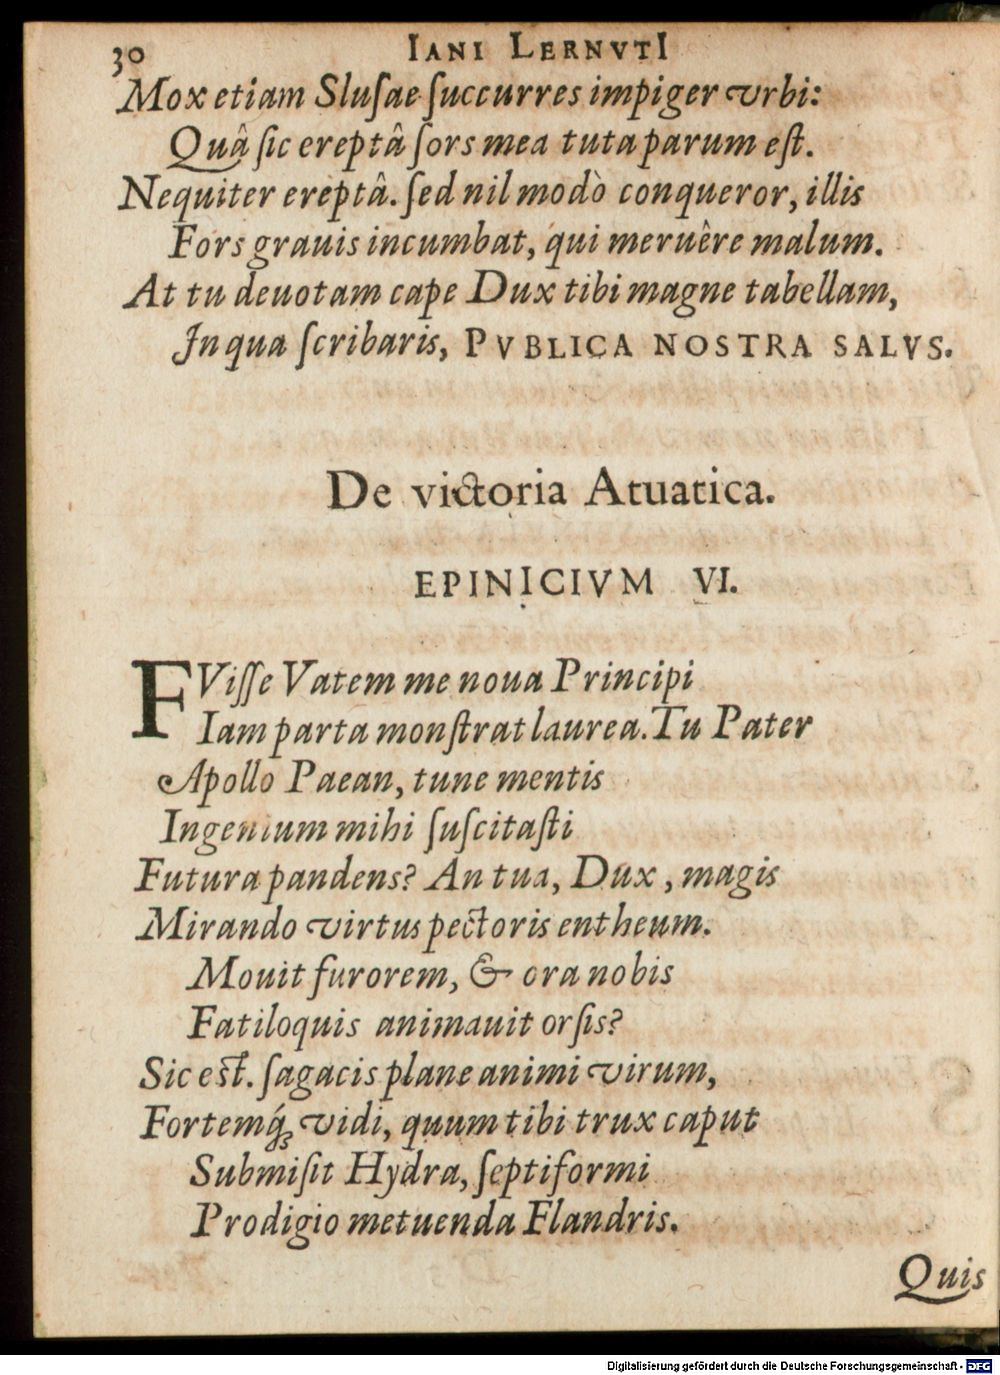 30 IANI LERNVTI
Mox etiam Sluſae ſuccurres impiger vrbi:
Quâ ſic ereptâ ſors mea tuta parum eſt.
Nequiter ereptâ. ſed nil modò conqueror, illis
Fors grauis incumbat, qui meruêre malum.
At tu deuotam cape Dux tibi magne tabellam,
In qua ſcribaris, PVBLICA NOSTRA SALVS.
De victoria Atuatica.
EPINICIVM VI.
FViſſe Vatem me noua Principi
Iam parta monſtrat laurea. Tu Pater
Apollo Paean, tune mentis
Ingenium mihi ſuſcitaſti
Futura pandens? An tua, Dux, magis
Mirando virtus pectoris entheum.
Mouit furorem, & ora nobis
Fatiloquis animauit orſis?
Sic eſt. ſagacis plane animi virum,
Fortemq́; vidi, quum tibi trux caput
Submiſit Hydra, ſeptiformi
Prodigio metuenda Flandris.
Quis
Digitalisierung gefördert durch die Deutsche Forschungsgemeinschaft - DFG